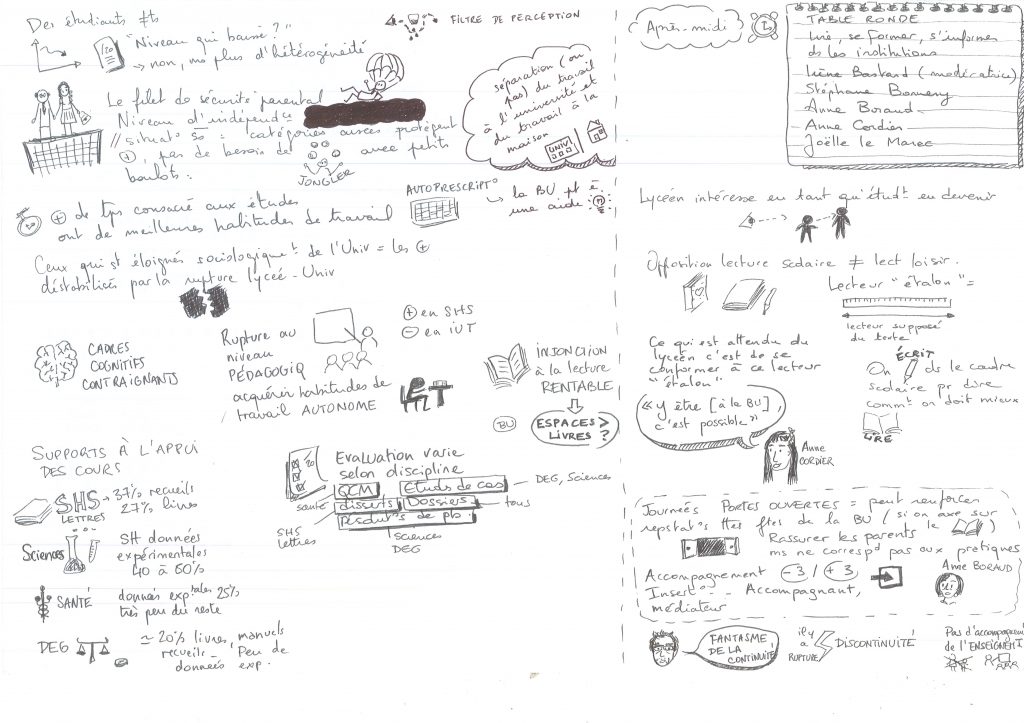 Des étudiants ≠ts
FILTRE DE PERCEPTION
20
"Niveau qui baisse ?"
→ non, ms plus d'hétérogénéité
Le filet de sécurité parental
Niveau d'indépendce
// situat°s = catégories aisées protègent
⊕, pas de besoin de
JONGLER
avec petits
boulots.
séparation (ou
pas) du travail
à l'université et
du travail à la
maison
UNIV
AUTOPRESCRIPT°
→ la BU pt ê.
une aide
⊕ de tps consacré aux études
ont de meilleures habitudes de travail
Ceux qui st éloignés sociologiquet de l'Univ = les ⊕
déstabilisés par la rupture lycée-Univ
CADRES
COGNITIFS
CONTRAIGNANTS
Rupture au
niveau
PÉDAGOGIQ
acquérir habitudes de
travail AUTONOME
⊕ en SHS
⊖ en IUT
INJONCTION
à la lecture
RENTABLE
BU
ESPACES >
LIVRES ?
SUPPORTS À L'APPUI
DES COURS
SHS → 37% recueils
27% livres
LETTRES
Sciences
SH données
expérimentales
40 à 60%
SANTÉ
données exptales 25%
très peu du reste
DEG
≃ 20% livres, manuels
recueils - Peu de
données exp.
20
Evaluation varie
selon discipline
QCM
Etude de cas
DEG, Sciences
santé
disserts
Dossiers
tous
Résolut°s de pb.
SHS
lettres
sciences
DEG
Après-midi
TABLE RONDE
Lire, se former, s'informer
ds les institutions
Irène Bastard (modératrice)
Stéphane Bonnery
Anne Boraud
Anne Cordier
Joëlle le Marec
Lycéen intéresse en tant qu'étudt en devenir
Opposition lecture scolaire ≠ lect loisir.
Lecteur "étalon" =
lecteur supposé
du texte
Ce qui est attendu du
lycéen c'est de se
conformer à ce lecteur
"étalon"
ÉCRIT
On ds le cadre
scolaire pr dire
commt on doit mieux
LIRE
« y être [à la BU],
c'est possible »
Anne
CORDIER
Journées PORTES OUVERTES = peut renforcer
repstat°s ttes ftes de la BU (si on axe sur
le )
Rassurer les parents
ms ne correspd pas aux pratiques
Accompagnement -3 / +3
Insert° - - Accompagnant,
médiateur
Anne BORAUD
FANTASME
DE LA
CONTINUITÉ
il y
a
RUPTURE
DISCONTINUITÉ
Pas d'accompagnemt
de l'ENSEIGNEMT